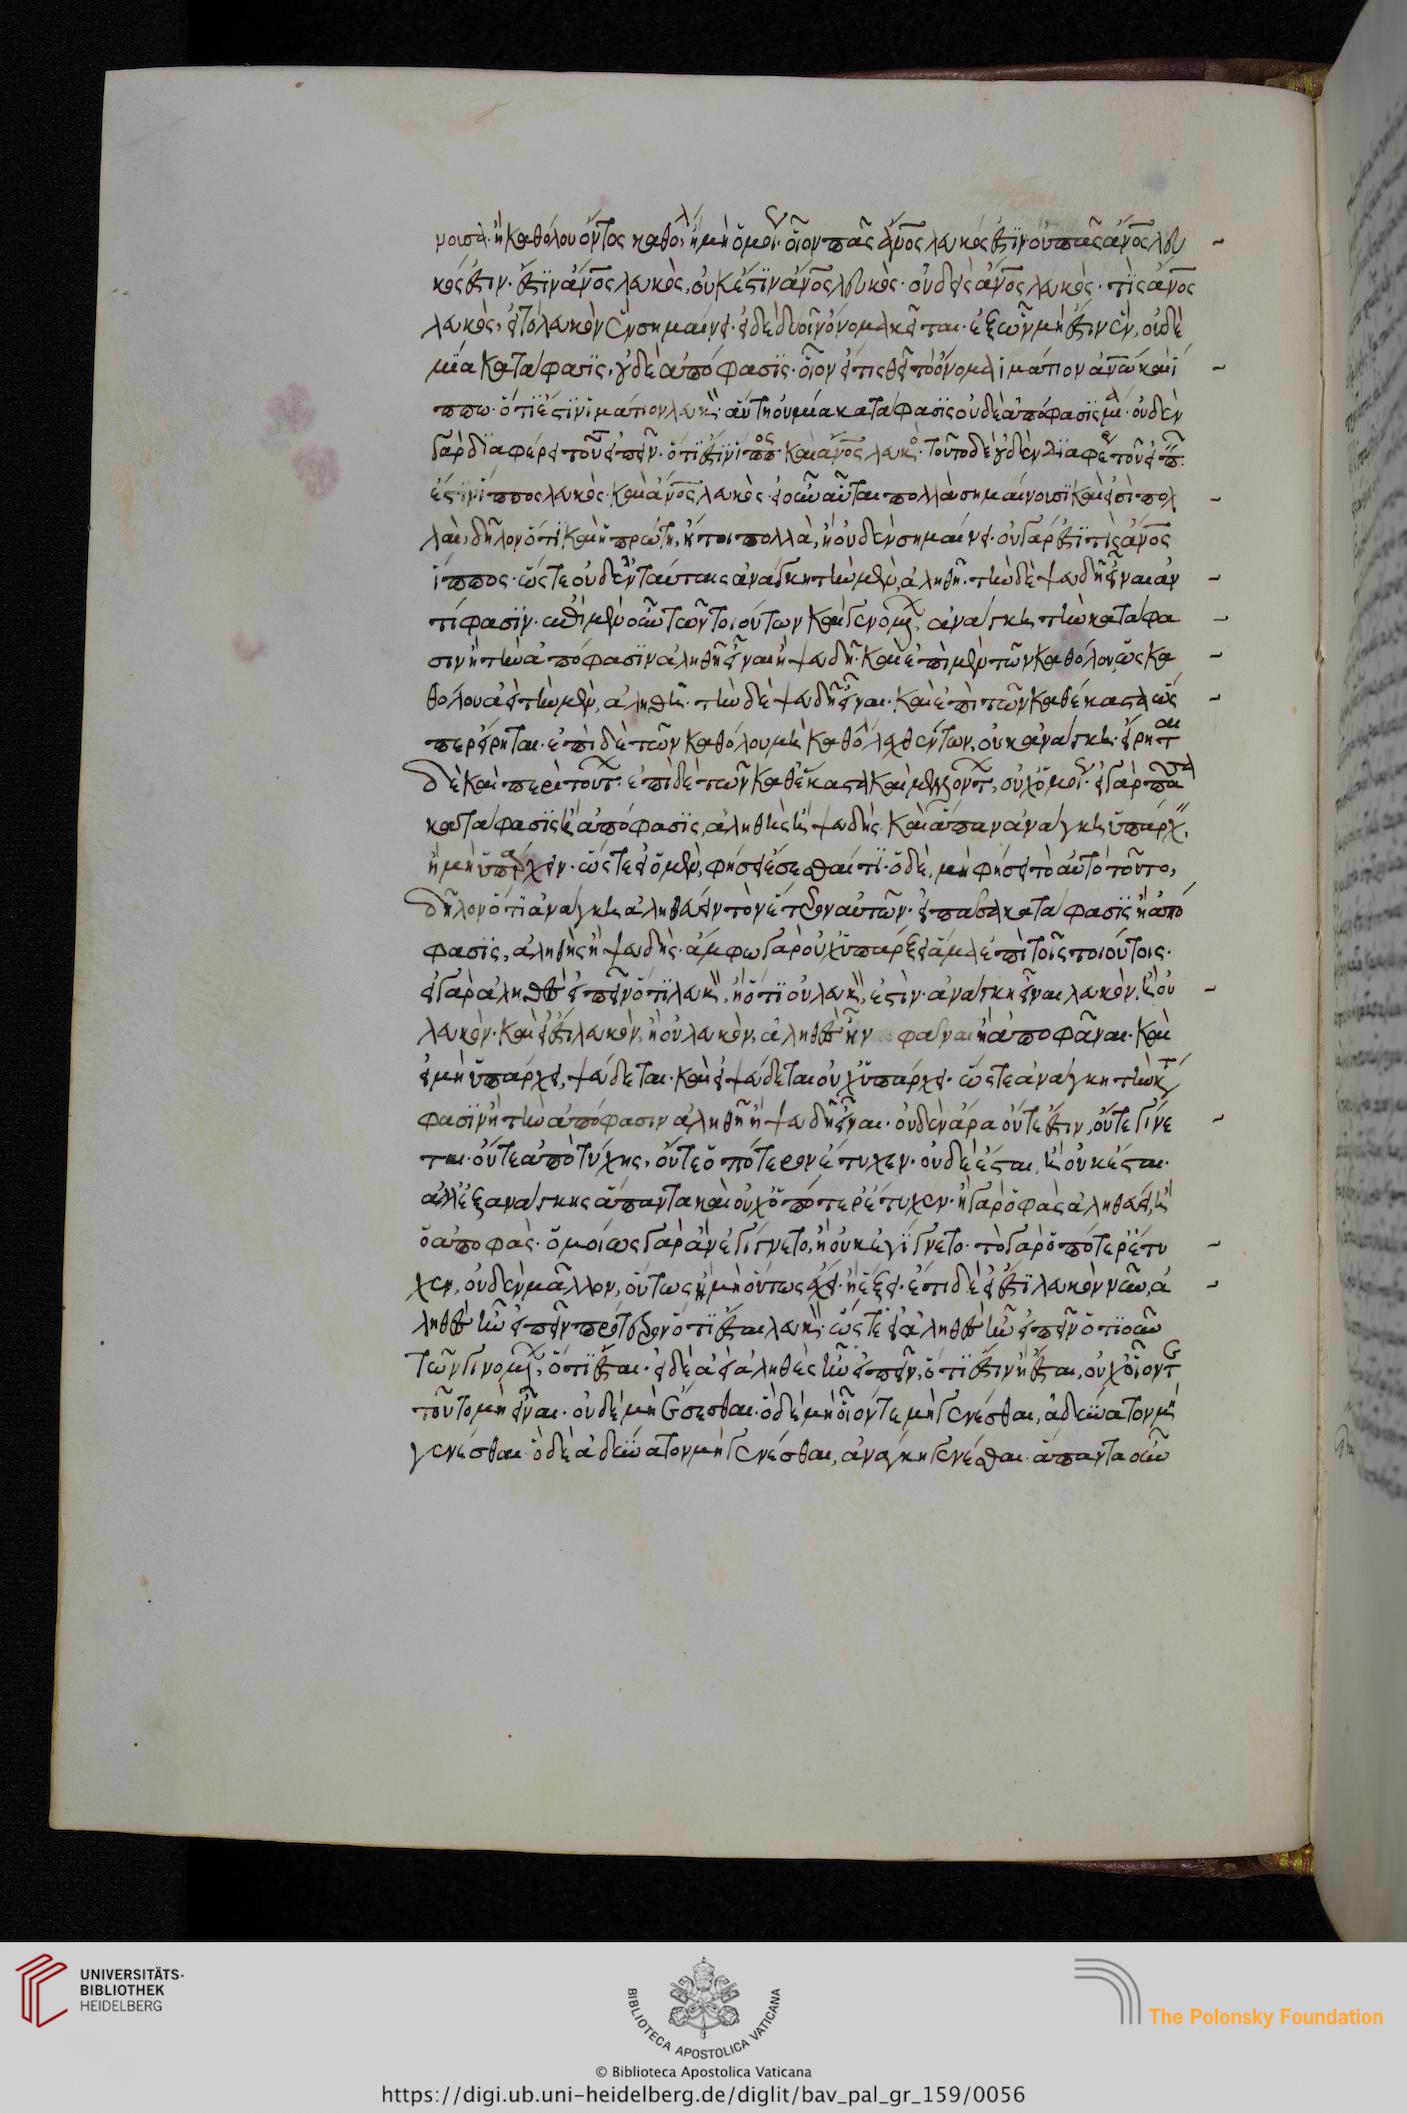 νουσα· ἢ καθόλου ὄντος καθό(λ) ἢ μὴ ὁμοί· οἷον πᾶς ἄνος λευκός ἐστϊν οὐ πᾶς ἄνος λευ
κός ἐστιν· ἔστϊν ἄνος λευκὸς, οὐκ ἔστϊν ἄνος λευκὸς· οὐδεὶς ἄνος λευκὸς· τὶς ἄνος
λευκὸς, εἰ τὸ λευκὸν ἓν σημαίνει· εἰ δὲ δυοῖν ὄνομα κεῖται· ἐξ ὧν μὴ ἔστιν ἓν, οὐδὲ
μία κατάφασϊς, οὐδὲ ἀπόφασϊς· οἷον εἴ τις θεῖτο ὄνομα ἱμάτιον ἀνω καὶ ἵ
ππω· ὅτϊ ἐστϊν ἱμάτιον λευκ· αὕτη οὐ μία κατάφασϊς οὐδὲ ἀπόφασϊς μία· οὐδὲν
γὰρ διαφέρει τοῦτο εἰπεῖν· ὅτϊ ἔστϊν ἵππος καὶ ἄνος λευκὸ· τοῦτο δὲ οὐδὲν διαφέ τοῦ εἰπ
ἐστϊν ἵππος λευκὸς· καὶ ἄνος λευκὸς· εἰ οὖν αὗται πολλὰ σημαίνουσϊ καὶ εἰσὶ πολ
λαὶ, δῆλον ὅτϊ καὶ ἡ πρώτη, ἤτοι πολλὰ, ἢ οὐδὲν σημαίνει· οὐ γάρ ἐστϊ τὶς ἄνος
ἵππος· ὥστε οὐδ' ἐν ταύταις ἀνάγκη τὴν μὲν, ἀληθῆ· τὴν δὲ ψευδῆ εἶναι ἀν
τίφασϊν· ἐπὶ μὲν οὖν τῶν ὄντων καὶ γενομ, ἀνάγκη τὴν κατάφα
σιν ἢ τὴν ἀπόφασϊν ἀληθῆ εἶναι ἢ ψευδῆ· καὶ ἐπὶ μὲν τῶν καθόλου, ὡς κα
θόλου ἀεὶ τὴν μὲν, ἀληθῆ· τὴν δὲ ψευδῆ εἶναι· καὶ ἐπὶ τῶν καθέκαστα ὥς
περ εἴρηται· ἐπὶ δὲ τῶν καθόλου μὴ καθόλ λεχθέντων, οὐκ ἀνάγκη· εἴρηται
δὲ καὶ περὶ τούτ· ἐπὶ δὲ τῶν καθέκαστα καὶ μελλόντ, οὐχ ὁμοί· εἰ γὰρ πᾶσα
κατάφασϊς ἢ ἀπόφασϊς, ἀληθὴς ἢ ψευδής· καὶ ἅπαν ἀνάγκη ὑπάρχ,
ἢ μὴ ὑπάρχειν· ὥστε εἰ ὁ μὲν, φήσει ἔσεσθαί τϊ· ὁ δὲ, μὴ φήσει τὸ αὐτὸ τοῦτο,
δῆλον ὅτϊ ἀνάγκη ἀληθεύειν τὸν ἕτερον αὐτῶν· εἰ πᾶσα κατάφασϊς ἢ ἀπό
φασϊς, ἀληθὴς ἢ ψευδής· ἄμφω γὰρ οὐχ ὑπάρξει ἅμα ἐπὶ τοῖς τοιούτοις·
εἰ γὰρ ἀληθὲς εἰπεῖν ὅτϊ λευκ, ἢ ὅτϊ οὐ λευκ, ἐστὶν· ἀνάγκη εἶναι λευκὸν, ἢ οὐ
λευκὸν· καὶ εἰ ἔστϊ λευκὸν, ἢ οὐ λευκὸν, ἀληθὲς ἦν φάναι ἢ ἀποφᾶναι· καὶ
εἰ μὴ ὑπάρχει, ψεύδεται· καὶ εἰ ψεύδεται οὐχ ὑπάρχει· ὥστε ἀνάγκη τὴν κατά
φασϊν ἢ τὴν ἀπόφασιν ἀληθῆ ἢ ψευδῆ εἶναι· οὐδὲν ἄρα οὔτε ἔστιν, οὔτε γίνε
ται· οὔτε ἀπὸ τύχης, οὔτε ὁπότερον ἔτυχεν· οὐδὲ ἔσται, ἢ οὐκ ἔσται·
ἀλλ' ἐξ ἀνάγκης ἅπαντα καὶ οὐχ ὁπότερ ἔτυχεν· ἢ γὰρ ὁ φὰς ἀληθεύει, ἢ
ὁ ἀποφὰς· ὁμοίως γὰρ ἂν ἐγίγνετο, ἢ οὐκ ἐγίγνετο· τὸ γὰρ ὁπότερ ἔτυ
χεν, οὐδὲν μᾶλλον, οὕτως ἢ μὴ οὕτως ἔχει· ἢ ἕξει· ἔτι δὲ εἰ ἔστϊ λευκὸν νῦν, ἀ
ληθὲς ἦν εἰπεῖν πρότερον ὅτϊ ἔσται λευκ· ὥστε εἰ ἀληθὲς ἦν εἰπεῖν ὅτϊ οὖν
τῶν γινομ, ὅτϊ ἔσται· εἰ δὲ ἀεὶ ἀληθὲς ἦν εἰπεῖν, ὅτϊ ἔστιν ἢ ἔσται, οὐχ οἷόντε
τοῦτο μὴ εἶναι· οὐδὲ μὴ ἔσεσθαι· ὃ δὲ μὴ οἷόν τε μὴ γενέσθαι, ἀδύνατον μὴ
γενέσθαι· ὃ δὲ ἀδύνατον μὴ γενέσθαι, ἀνάγκη γενέσθαι· ἅπαντα οὖν
UNIVERSITÄTS-
BIBLIOTHEK
HEIDELBERG
BIBLIOTECA APOSTOLICA VATICANA
The Polonsky Foundation
© Biblioteca Apostolica Vaticana
https://digi.ub.uni-heidelberg.de/diglit/bav_pal_gr_159/0056